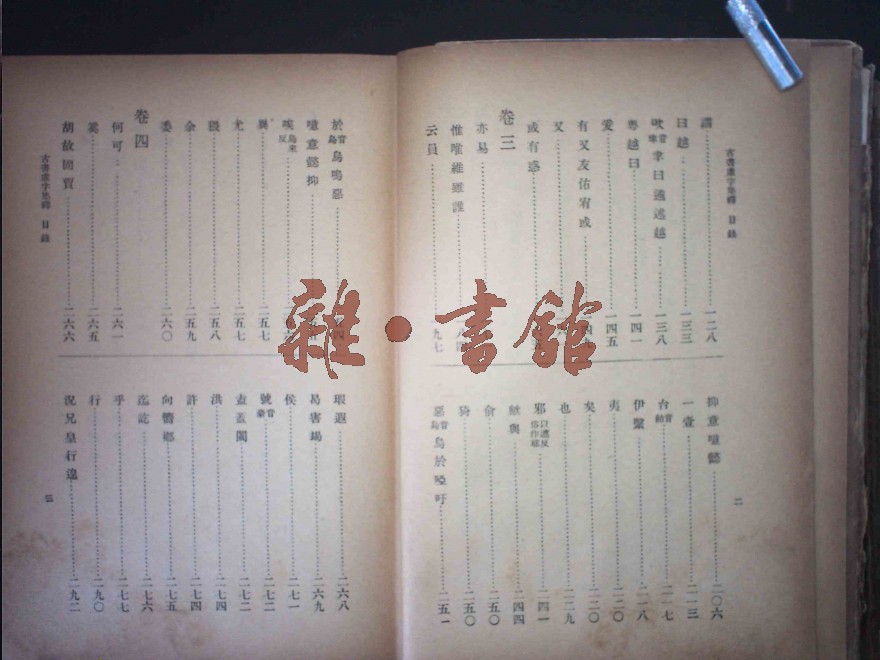 古書虛字集釋 目錄
二
謂 一二八
曰越 一三三
欥音聿聿曰遹述越 一三八
粵越曰 一四一
爰 一四五
有又友佑宥或
又
或有惑
卷三
亦易
惟唯維雖誰
云員 九七
抑意噫懿 二〇六
一壹 二一三
台音飴 二一七
伊繄 二一八
夷 二二〇
矣 二二〇
也 二二九
邪 二四一
歟與 二四四
俞 二五〇
猗 二五〇
惡音烏烏於啞吁 二五一
於音烏烏嗚惡
噫意懿抑
唉烏來反
異 二五七
尤 二五七
猥 二五八
余 二五九
委 二六〇
卷四
何可 二六一
奚 二六五
胡故固賈 二六六
古書虛字集釋 目錄
瑕遐 二六八
曷害䁥 二六九
侯 二七一
號音豪 二七二
盍蓋闔 二七二
洪 二七四
許 二七四
向嚮鄉 二七五
迄訖 二七六
乎 二七七
行 二九〇
況兄皇行遑 二九二
三
雜·書館